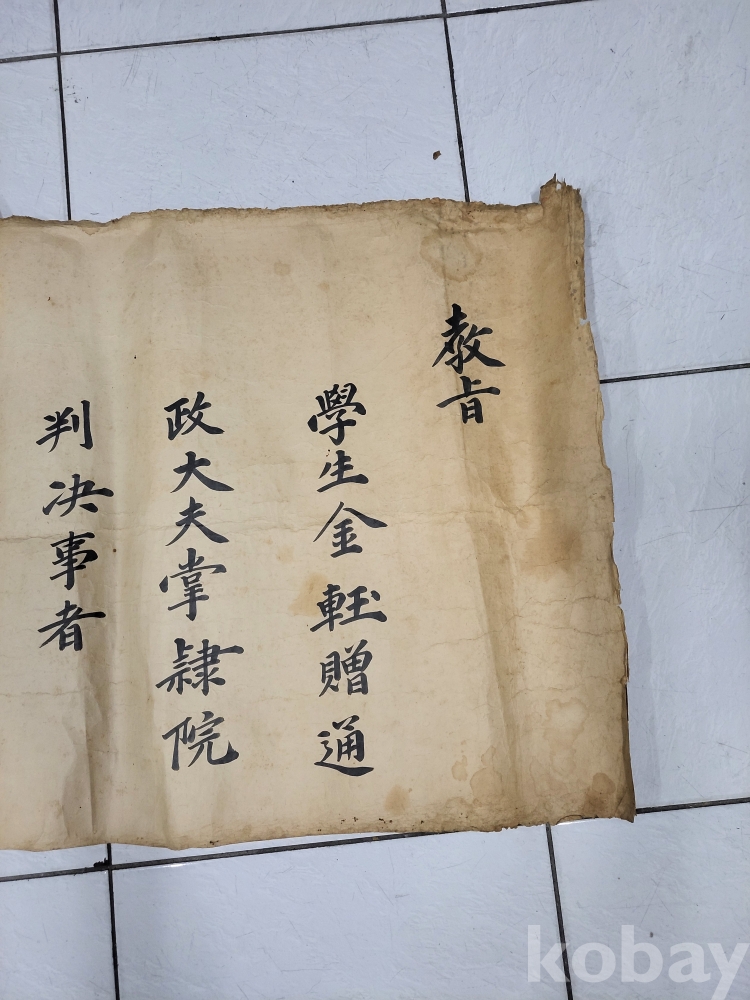 教旨
學生金軠贈通
政大夫掌隷院
判决事者
kobay